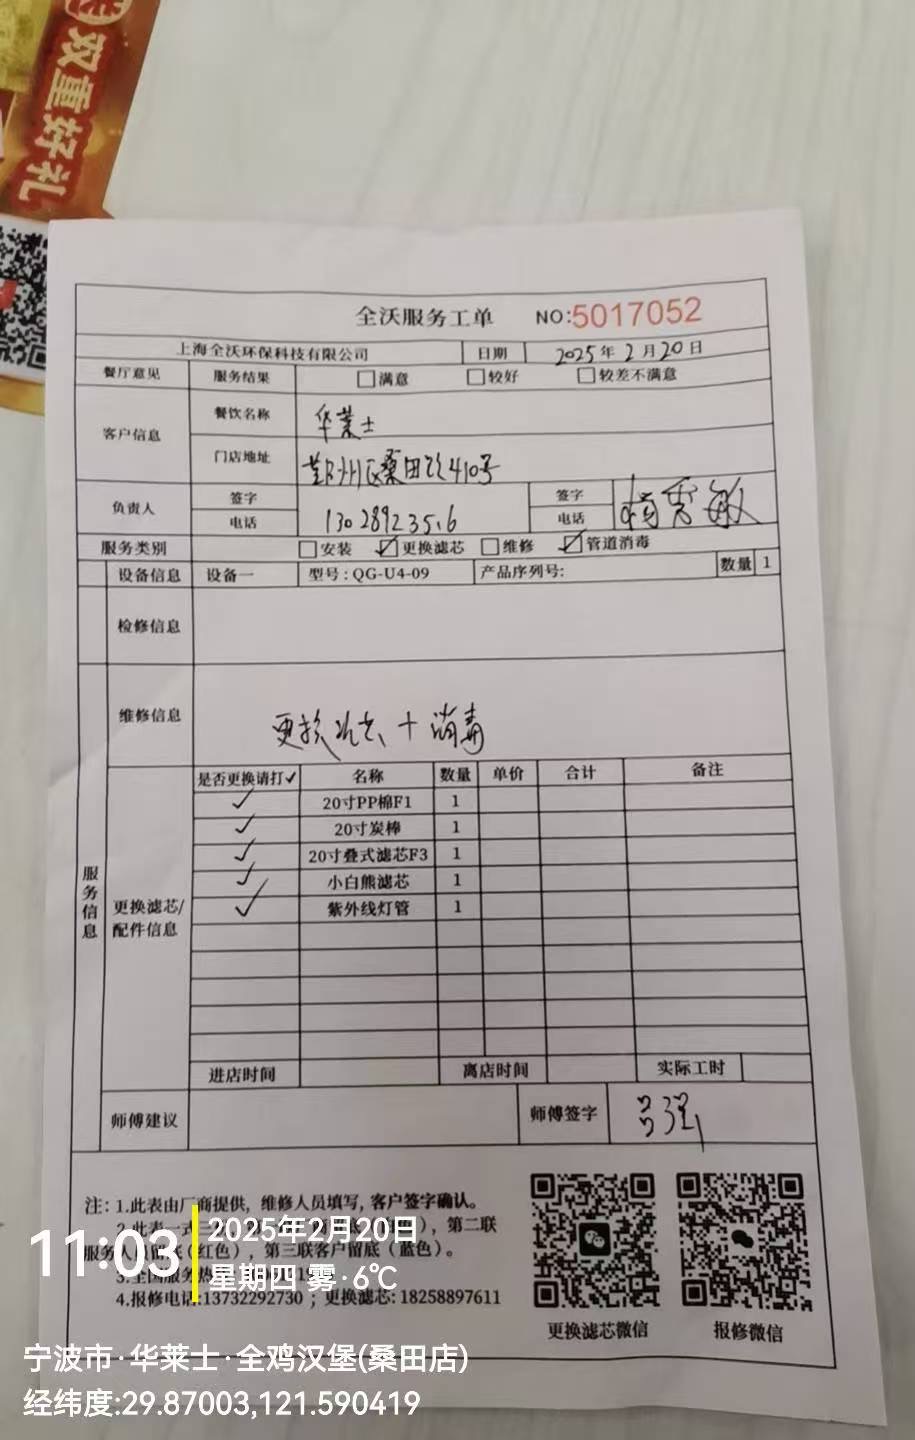 双重好礼
全沃服务工单 NO:5017052
上海全沃环保科技有限公司 日期 2025年2月20日
餐厅意见 服务结果 □满意 □较好 □较差不满意
客户信息 餐饮名称 华莱士
门店地址 鄞州区桑田路410号
负责人 签字 签字
电话 13028923516 电话
服务类别 □安装 ☑更换滤芯 □维修 ☑管道消毒
设备信息 设备一 型号:QG-U4-09 产品序列号: 数量 1
检修信息
维修信息 更换滤芯+消毒
服务信息
更换滤芯/配件信息
是否更换请打✓ 名称 数量 单价 合计 备注
✓ 20寸PP棉F1 1
✓ 20寸炭棒 1
✓ 20寸叠式滤芯F3 1
✓ 小白熊滤芯 1
✓ 紫外线灯管 1
进店时间 离店时间 实际工时
师傅建议 师傅签字 吕强
注: 1.此表由厂商提供，维修人员填写，客户签字确认。
2.此表一式 ，第二联
服务人员留底（红色），第三联客户留底（蓝色）。
3.全国服务热
4.报修电话:13732292730 ; 更换滤芯: 18258897611
更换滤芯微信 报修微信
11:03
2025年2月20日
星期四 雾·6℃
宁波市·华莱士·全鸡汉堡(桑田店)
经纬度:29.87003,121.590419